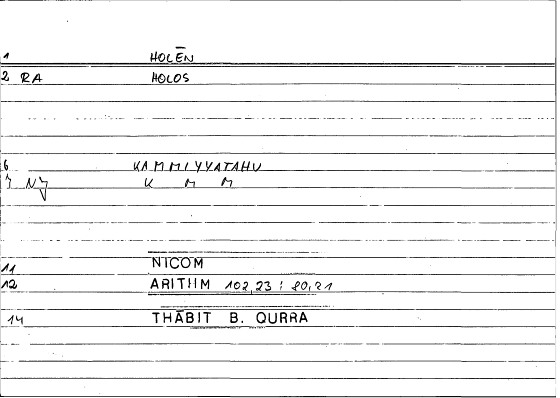 1 HOLĒN
2 RA HOLOS
6 KAMMIYYATAHU
7 K M M
11 NICOM
12 ARITHM 102,23 : 80,21
14 THĀBIT B. QURRA